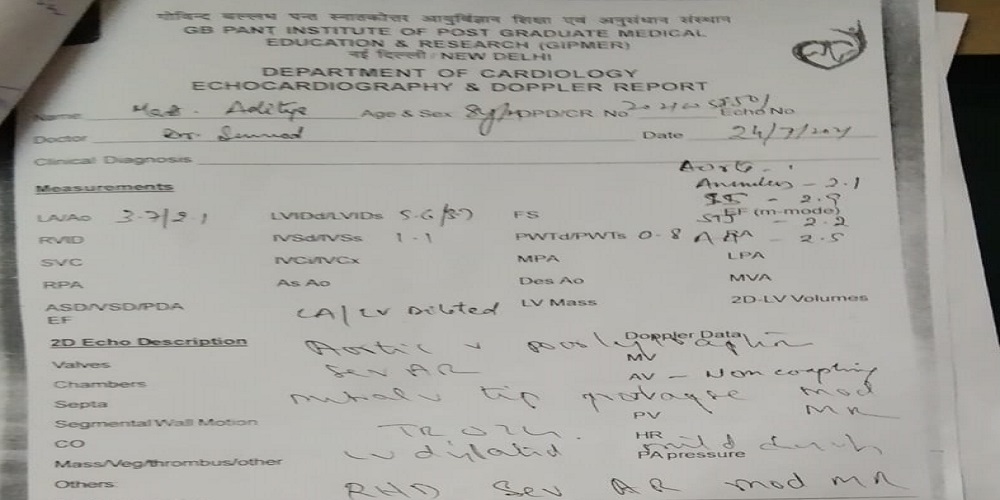 गोविन्द बल्लभ पन्त स्नातकोत्तर आयुर्विज्ञान शिक्षा एवं अनुसंधान संस्थान
GB PANT INSTITUTE OF POST GRADUATE MEDICAL
EDUCATION & RESEARCH (GIPMER)
नई दिल्ली / NEW DELHI
DEPARTMENT OF CARDIOLOGY
ECHOCARDIOGRAPHY & DOPPLER REPORT
Name Mas. Aditya Age & Sex 8y/M OPD/CR No Echo No
Doctor Dr. Date 24/7/2021
Clinical Diagnosis
Aorta -
Measurements Annulus - 2.1
SS - 2.9
LA/Ao 3.7/2.1 LVIDd/LVIDs 5.6/3.7 FS EF (m-mode)
STJ - 2.2
RVID IVSd/IVSs 1.1 PWTd/PWTs 0.8 - 2.5
SVC IVCi/IVCx MPA LPA
RPA As Ao Des Ao MVA
ASD/VSD/PDA LV Mass 2D-LV Volumes
EF LA/LV Dilated
2D Echo Description Aortic v Doppler Data
Valves Sev AR MV
Chambers AV - Non coapting
Septa mitral v tip prolapse mod
PV MR
Segmental Wall Motion
CO LV dilated HR mild
Mass/Veg/thrombus/other PA pressure
Others RHD Sev AR mod MR